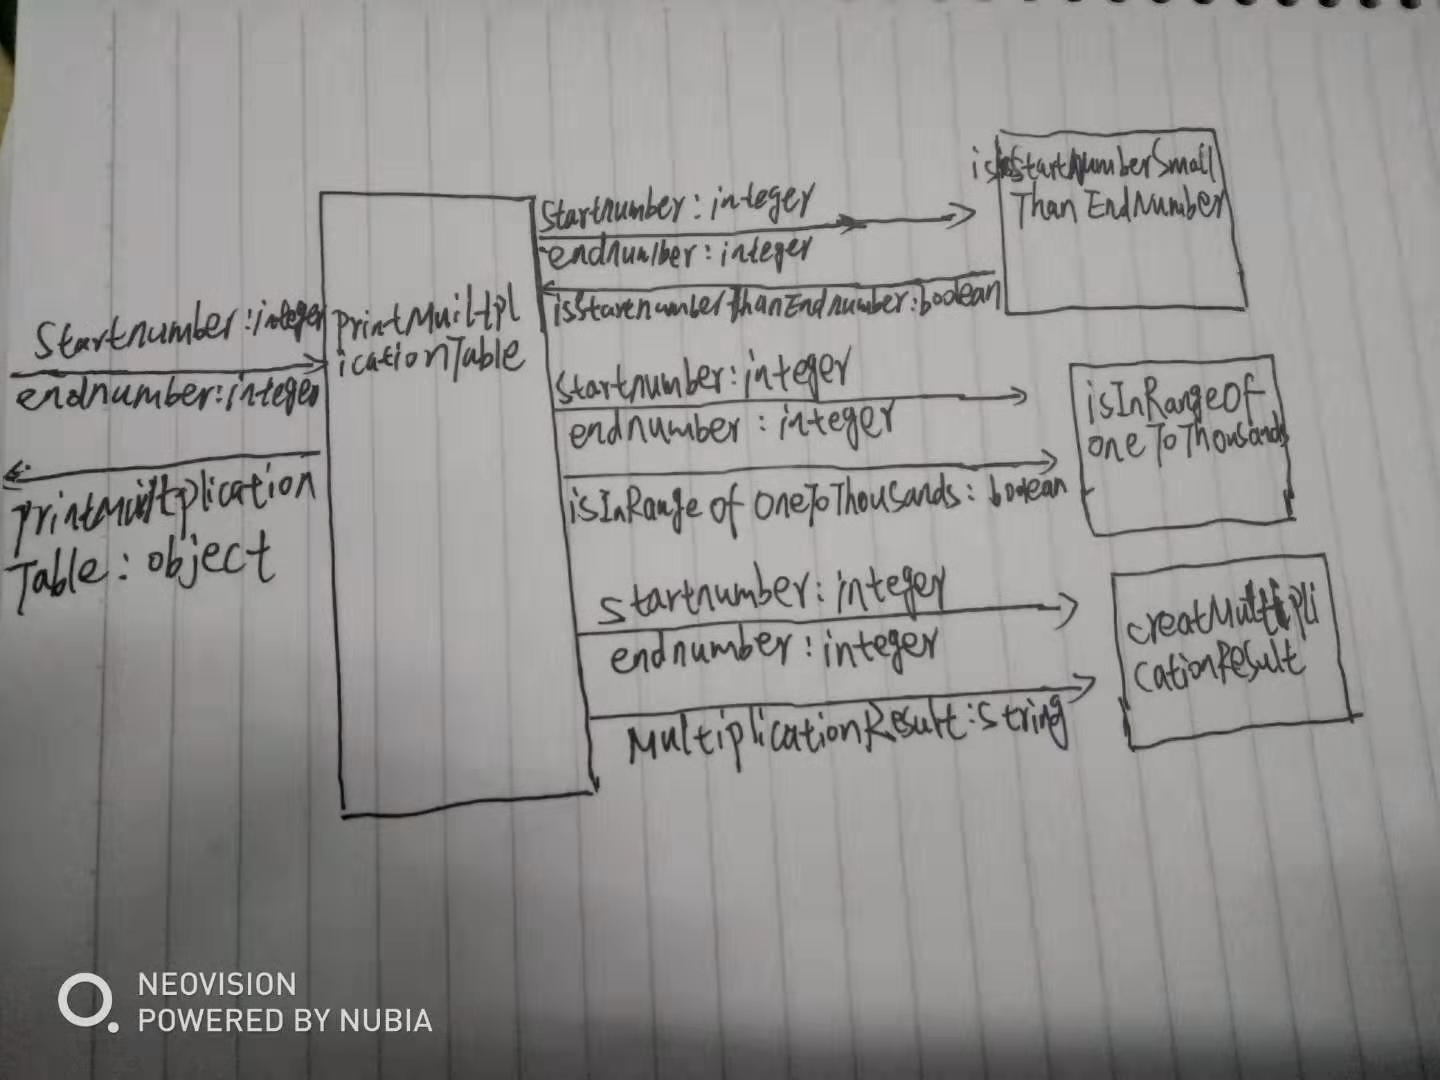 Startnumber:integer
endnumber:integer
printMuiltplication
Table: object
printMuiltpl
icationTable
Startnumber: integer
endnumber: integer
isStartnumberThanEndnumber:boolean
isStartNumberSmall
Than EndNumber
Startnumber: integer
endnumber: integer
isInRange of OneToThousands: boolean
isInRangeOf
oneToThousands
Startnumber: integer
endnumber: integer
MultiplicationResult:String
creatMultipli
cationResult
NEOVISION
POWERED BY NUBIA